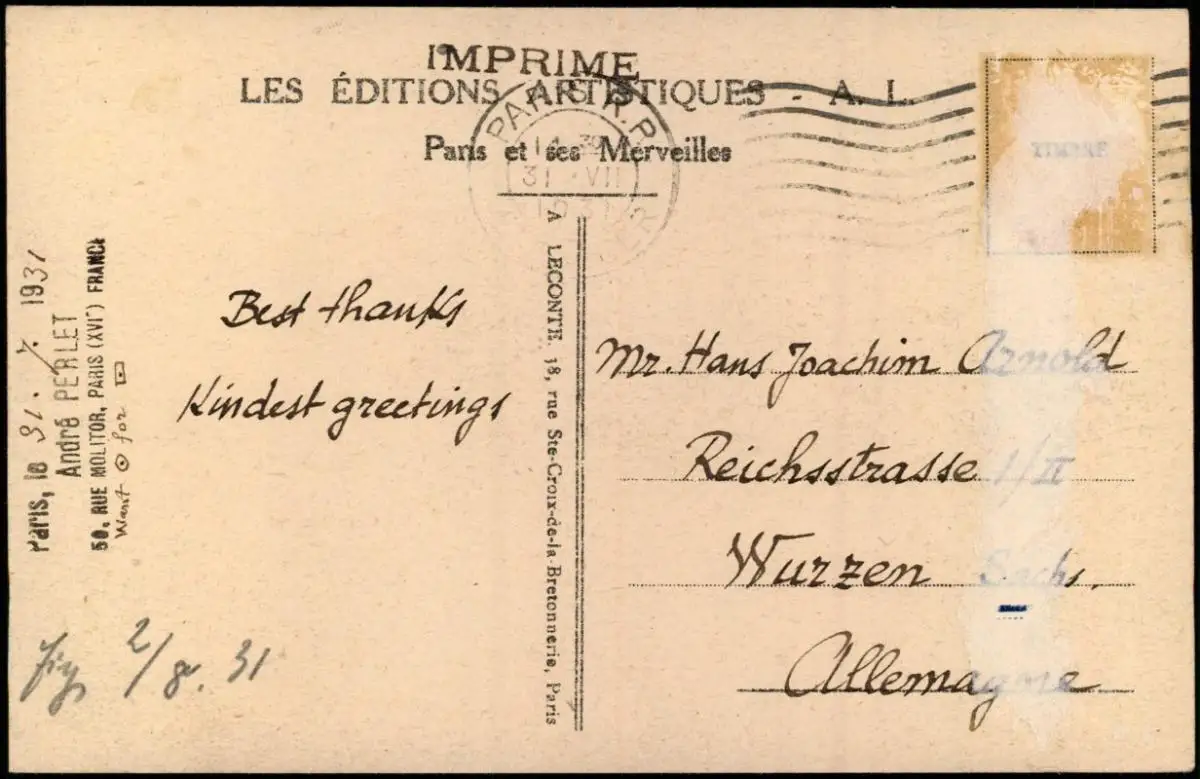 IMPRIME
LES ÉDITIONS ARTISTIQUES - A. L.
Paris et ses Merveilles
PARIS R.P.
14 30
31 VII
1931
TIMBRE
A LECONTE, 38, rue Ste-Croix-de-la-Bretonnerie, Paris
Paris, le 31. 7. 1931
André PERLET
50, RUE MOLITOR, PARIS (XVIe) FRANCE
Want ⊙ for
Best thanks
Kindest greetings
2/8. 31
Mr. Hans Joachim Arnold
Reichsstrasse 1/II
Wurzen Sachs.
Allemagne